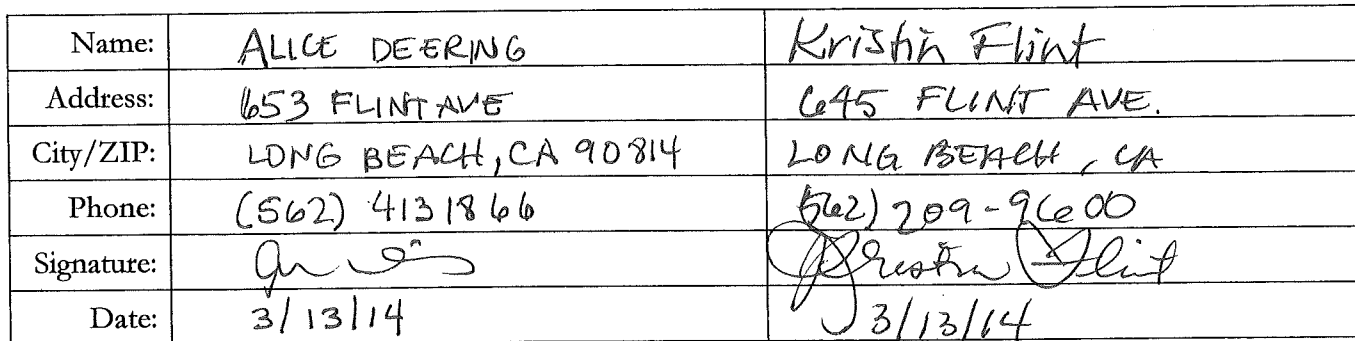 Name: ALICE DEERING Kristin Flint
Address: 653 FLINT AVE 645 FLINT AVE.
City/ZIP: LONG BEACH, CA 90814 LONG BEACH, CA
Phone: (562) 4131866 562) 209-9600
Signature: Kristin Flint
Date: 3/13/14 3/13/14